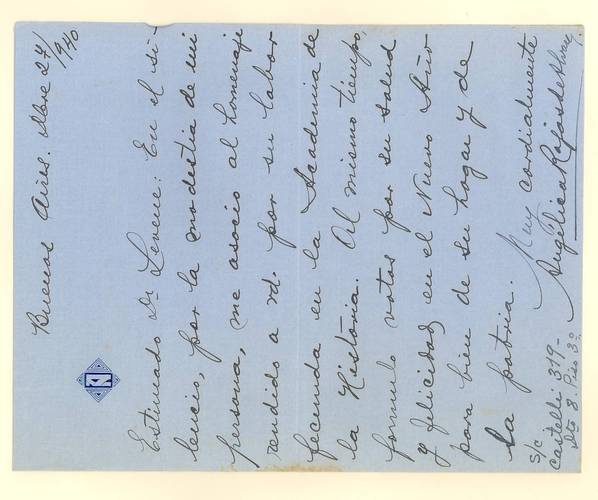 Buenos Aires. Dbre 27/
/940
Estimado Dr. Levene: En el si-
lencio, por la modestia de mi
persona, me asocio al homenaje
rendido a Vd. por su labor
fecunda en la Academia de
la Historia. Al mismo tiempo,
formulo votos por su salud
y felicidad en el Nuevo Año
para bien de su hogar y de
la patria.
Muy cordialmente
Angélica Rojas de Alvarez
S/C
Castelli 319-
Dto 8. Piso 3º